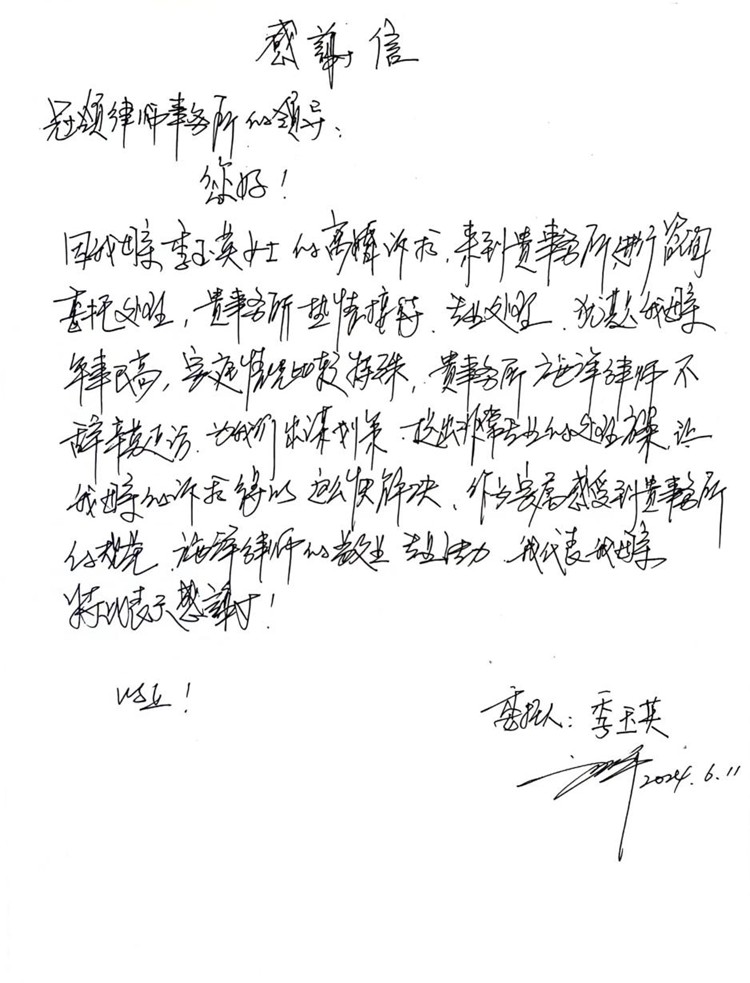 感謝信
冠领律师事务所的领导:
您好!
因我母亲李玉英女士的离婚诉求,来到貴事务所进行咨询
委托处理,貴事务所热情接待、专业处理、我母亲
年事已高,家庭情况比较特殊,貴事务所施洋律师不
辞辛苦走访、为我们出谋划策、提出非常专业的处理方案,让
我母亲的诉求得以这么快解决,作为家属感受到貴事务所
的规范、施洋律师的敬业、专业能力、我代表我母亲
特此表示感謝!
以上!
委托人:李玉英
2024.6.11